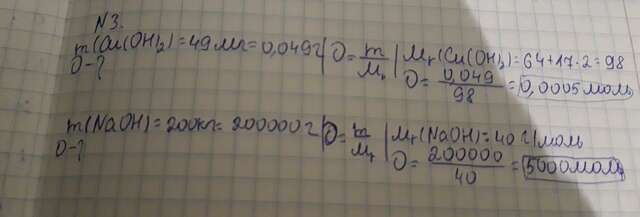 N3.
m(Cu(OH)₂)=49мг=0,049г | ϑ=m/Mᵣ | Mᵣ(Cu(OH)₂)=64+17·2=98
ϑ-?
ϑ=0,049/98=0,0005моль
m(NaOH)=200кг=200000г | ϑ=m/Mᵣ | Mᵣ(NaOH)=40г/моль
ϑ-?
ϑ=200000/40=5000моль